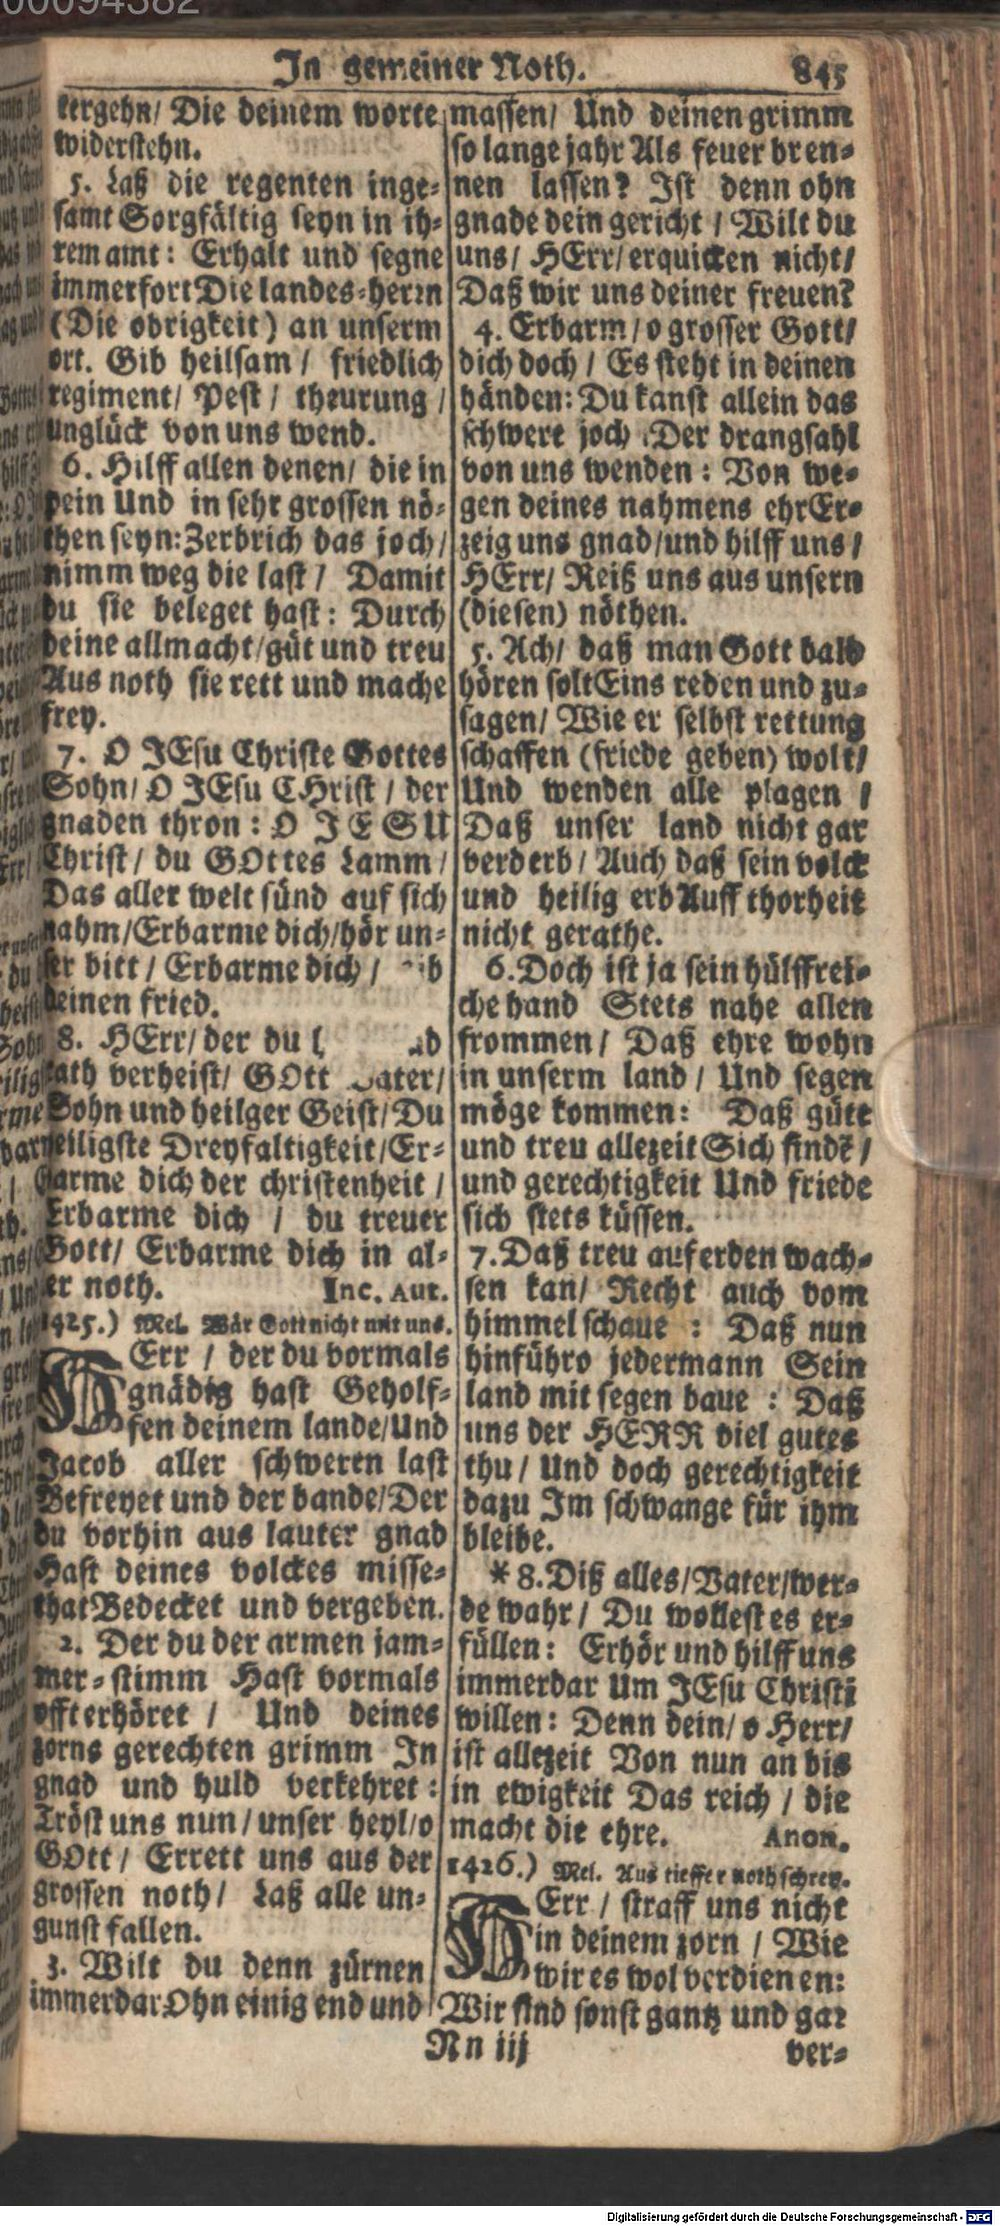 00094382
In gemeiner Noth. 845
tergehn/ Die deinem worte
widerstehn.
5. Laß die regenten inge-
samt Sorgfältig seyn in ih-
rem amt: Erhalt und segne
immerfort Die landes-herrn
(Die obrigkeit) an unserm
ort. Gib heilsam/ friedlich
regiment/ Pest/ theurung/
unglück von uns wend.
6. Hilff allen denen/ die in
pein Und in sehr grossen nö-
then seyn: Zerbrich das joch/
nimm weg die last/ Damit
du sie beleget hast: Durch
deine allmacht/güt und treu
Aus noth sie rett und mache
frey.
7. O JEsu Christe Gottes
Sohn/ O JEsu CHrist/ der
gnaden thron: O JESU
Christ/ du GOttes Lamm/
Das aller welt sünd auf sich
nahm/Erbarme dich/hör un-
ser bitt/ Erbarme dich/
deinen fried.
8. HErr/ der du
rath verheist/ GOtt Vater/
Sohn und heilger Geist/ Du
heiligste Dreyfaltigkeit/Er-
barme dich der christenheit/
Erbarme dich/ du treuer
Gott/ Erbarme dich in al-
er noth. Inc. Aut.
1425.) Mel. Wär Gott nicht mit uns.
HErr/ der du vormals
gnädig hast Geholf-
fen deinem lande/Und
Jacob aller schweren last
Befreyet und der bande/Der
du vorhin aus lauter gnad
Hast deines volckes misse-
that Bedecket und vergeben.
2. Der du der armen jam-
mer-stimm Hast vormals
offt erhöret/ Und deines
zorns gerechten grimm In
gnad und huld verkehret:
Tröst uns nun/unser heyl/o
GOtt/ Errett uns aus der
grossen noth/ Laß alle un-
gunst fallen.
3. Wilt du denn zürnen
immerdar Ohn einig end und
massen/ Und deinen grimm
so lange jahr Als feuer bren-
nen lassen? Ist denn ohn
gnade dein gericht/ Wilt du
uns/ HErr/ erquicken nicht/
Daß wir uns deiner freuen?
4. Erbarm/o grosser Gott/
dich doch/ Es steht in deinen
händen: Du kanst allein das
schwere joch Der drangsahl
von uns wenden: Von we-
gen deines nahmens ehr Er-
zeig uns gnad/und hilff uns/
HErr/ Reiß uns aus unsern
(diesen) nöthen.
5. Ach/ daß man Gott bald
hören solt Eins reden und zu-
sagen/ Wie er selbst rettung
schaffen (friede geben) wolt/
Und wenden alle plagen/
Daß unser land nicht gar
verderb/ Auch daß sein volck
und heilig erb Auff thorheit
nicht gerathe.
6. Doch ist ja sein hülffrei-
che hand Stets nahe allen
frommen/ Daß ehre wohn
in unserm land/ Und segen
möge kommen: Daß güte
und treu allezeit Sich find̃e/
und gerechtigkeit Und friede
sich stets küssen.
7. Daß treu auf erden wach-
sen kan/ Recht auch vom
himmel schaue: Daß nun
hinführo jedermann Sein
land mit segen baue: Daß
uns der HERR viel gutes
thu/ Und doch gerechtigkeit
dazu Im schwange für ihm
bleibe.
*8. Diß alles/Vater/wer-
de wahr/ Du wollest es er-
füllen: Erhör und hilff uns
immerdar Um JEsu Christi
willen: Denn dein/ o Herr/
ist allezeit Von nun an bis
in ewigkeit Das reich/ die
macht die ehre. Anon.
1426.) Mel. Aus tieffer noth schrey.
HErr/ straff uns nicht
in deinem zorn/ Wie
wir es wol verdienen:
Wir sind sonst gantz und gar
Nn iij ver-
Digitalisierung gefördert durch die Deutsche Forschungsgemeinschaft - DFG